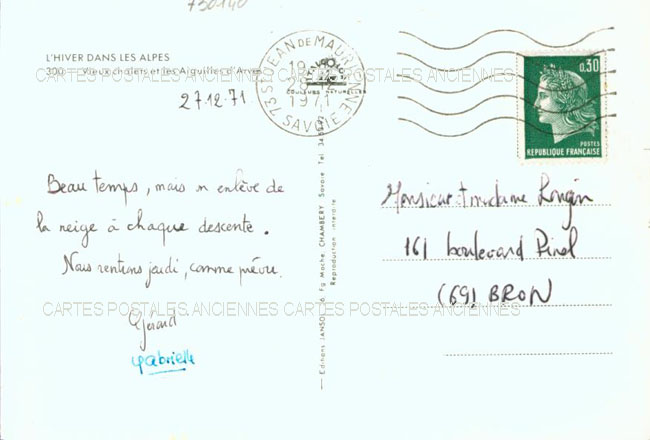 730140
L'HIVER DANS LES ALPES
300 Vieux chalets et les Aiguilles d'Arves
CARTES POSTALES ANCIENNES CARTES POSTALES ANCIENNES
27.12.71
73 ST JEAN DE MAURIENNE
1971
SAVOIE
COULEURS NATURELLES
0,30
POSTES
REPUBLIQUE FRANÇAISE
Beau temps, mais on enlève de
la neige à chaque descente.
Nous rentrons jeudi, comme prévu.
Gérard
Gabrielle
Editions JANSOL, Fg Mache, CHAMBERY Savoie Tel.
Reproduction interdite
Monsieur + madame Longin
161 boulevard Pinel
(69) BRON
CARTES POSTALES ANCIENNES CARTES POSTALES ANCIENNES